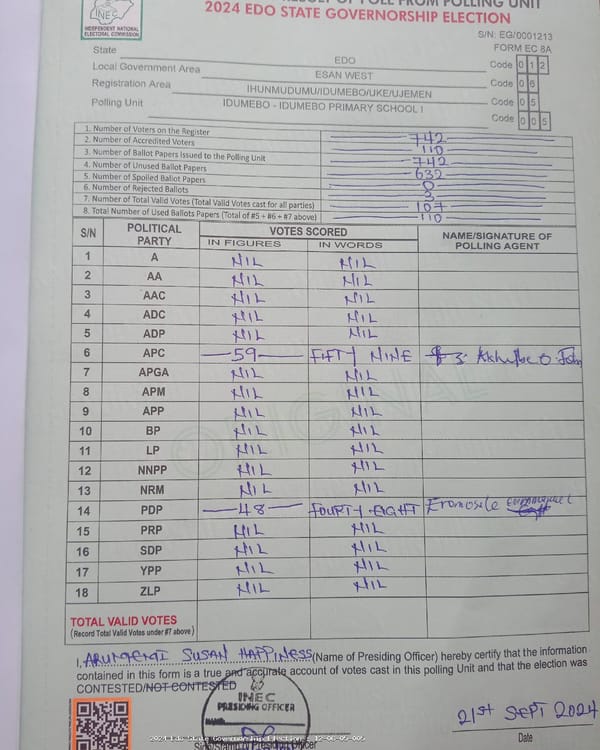 INEC
INDEPENDENT NATIONAL
ELECTORAL COMMISSION
RESULT OF POLL FROM POLLING UNIT
2024 EDO STATE GOVERNORSHIP ELECTION
S/N: EG/0001213
FORM EC 8A
State EDO Code 0 1 2
Local Government Area ESAN WEST Code 0 6
Registration Area IHUNMUDUMU/IDUMEBO/UKE/UJEMEN Code 0 5
Polling Unit IDUMEBO - IDUMEBO PRIMARY SCHOOL I Code 0 0 5
1. Number of Voters on the Register 742
2. Number of Accredited Voters 110
3. Number of Ballot Papers Issued to the Polling Unit 742
4. Number of Unused Ballot Papers 632
5. Number of Spoiled Ballot Papers 0
6. Number of Rejected Ballots 3
7. Number of Total Valid Votes (Total Valid Votes cast for all parties) 107
8. Total Number of Used Ballots Papers (Total of #5 + #6 + #7 above) 110
S/N POLITICAL PARTY VOTES SCORED NAME/SIGNATURE OF POLLING AGENT
IN FIGURES IN WORDS
1 A NIL NIL
2 AA NIL NIL
3 AAC NIL NIL
4 ADC NIL NIL
5 ADP NIL NIL
6 APC 59 FIFTY NINE
7 APGA NIL NIL
8 APM NIL NIL
9 APP NIL NIL
10 BP NIL NIL
11 LP NIL NIL
12 NNPP NIL NIL
13 NRM NIL NIL
14 PDP 48 FOURTY-EIGHT Eromosele
15 PRP NIL NIL
16 SDP NIL NIL
17 YPP NIL NIL
18 ZLP NIL NIL
ORIGINAL
TOTAL VALID VOTES
(Record Total Valid Votes under #7 above)
I, SUSAN HAPPINESS (Name of Presiding Officer) hereby certify that the information
contained in this form is a true and accurate account of votes cast in this polling Unit and that the election was
CONTESTED/NOT CONTESTED
INEC
PRESIDING OFFICER
21st SEPT 2024
Date